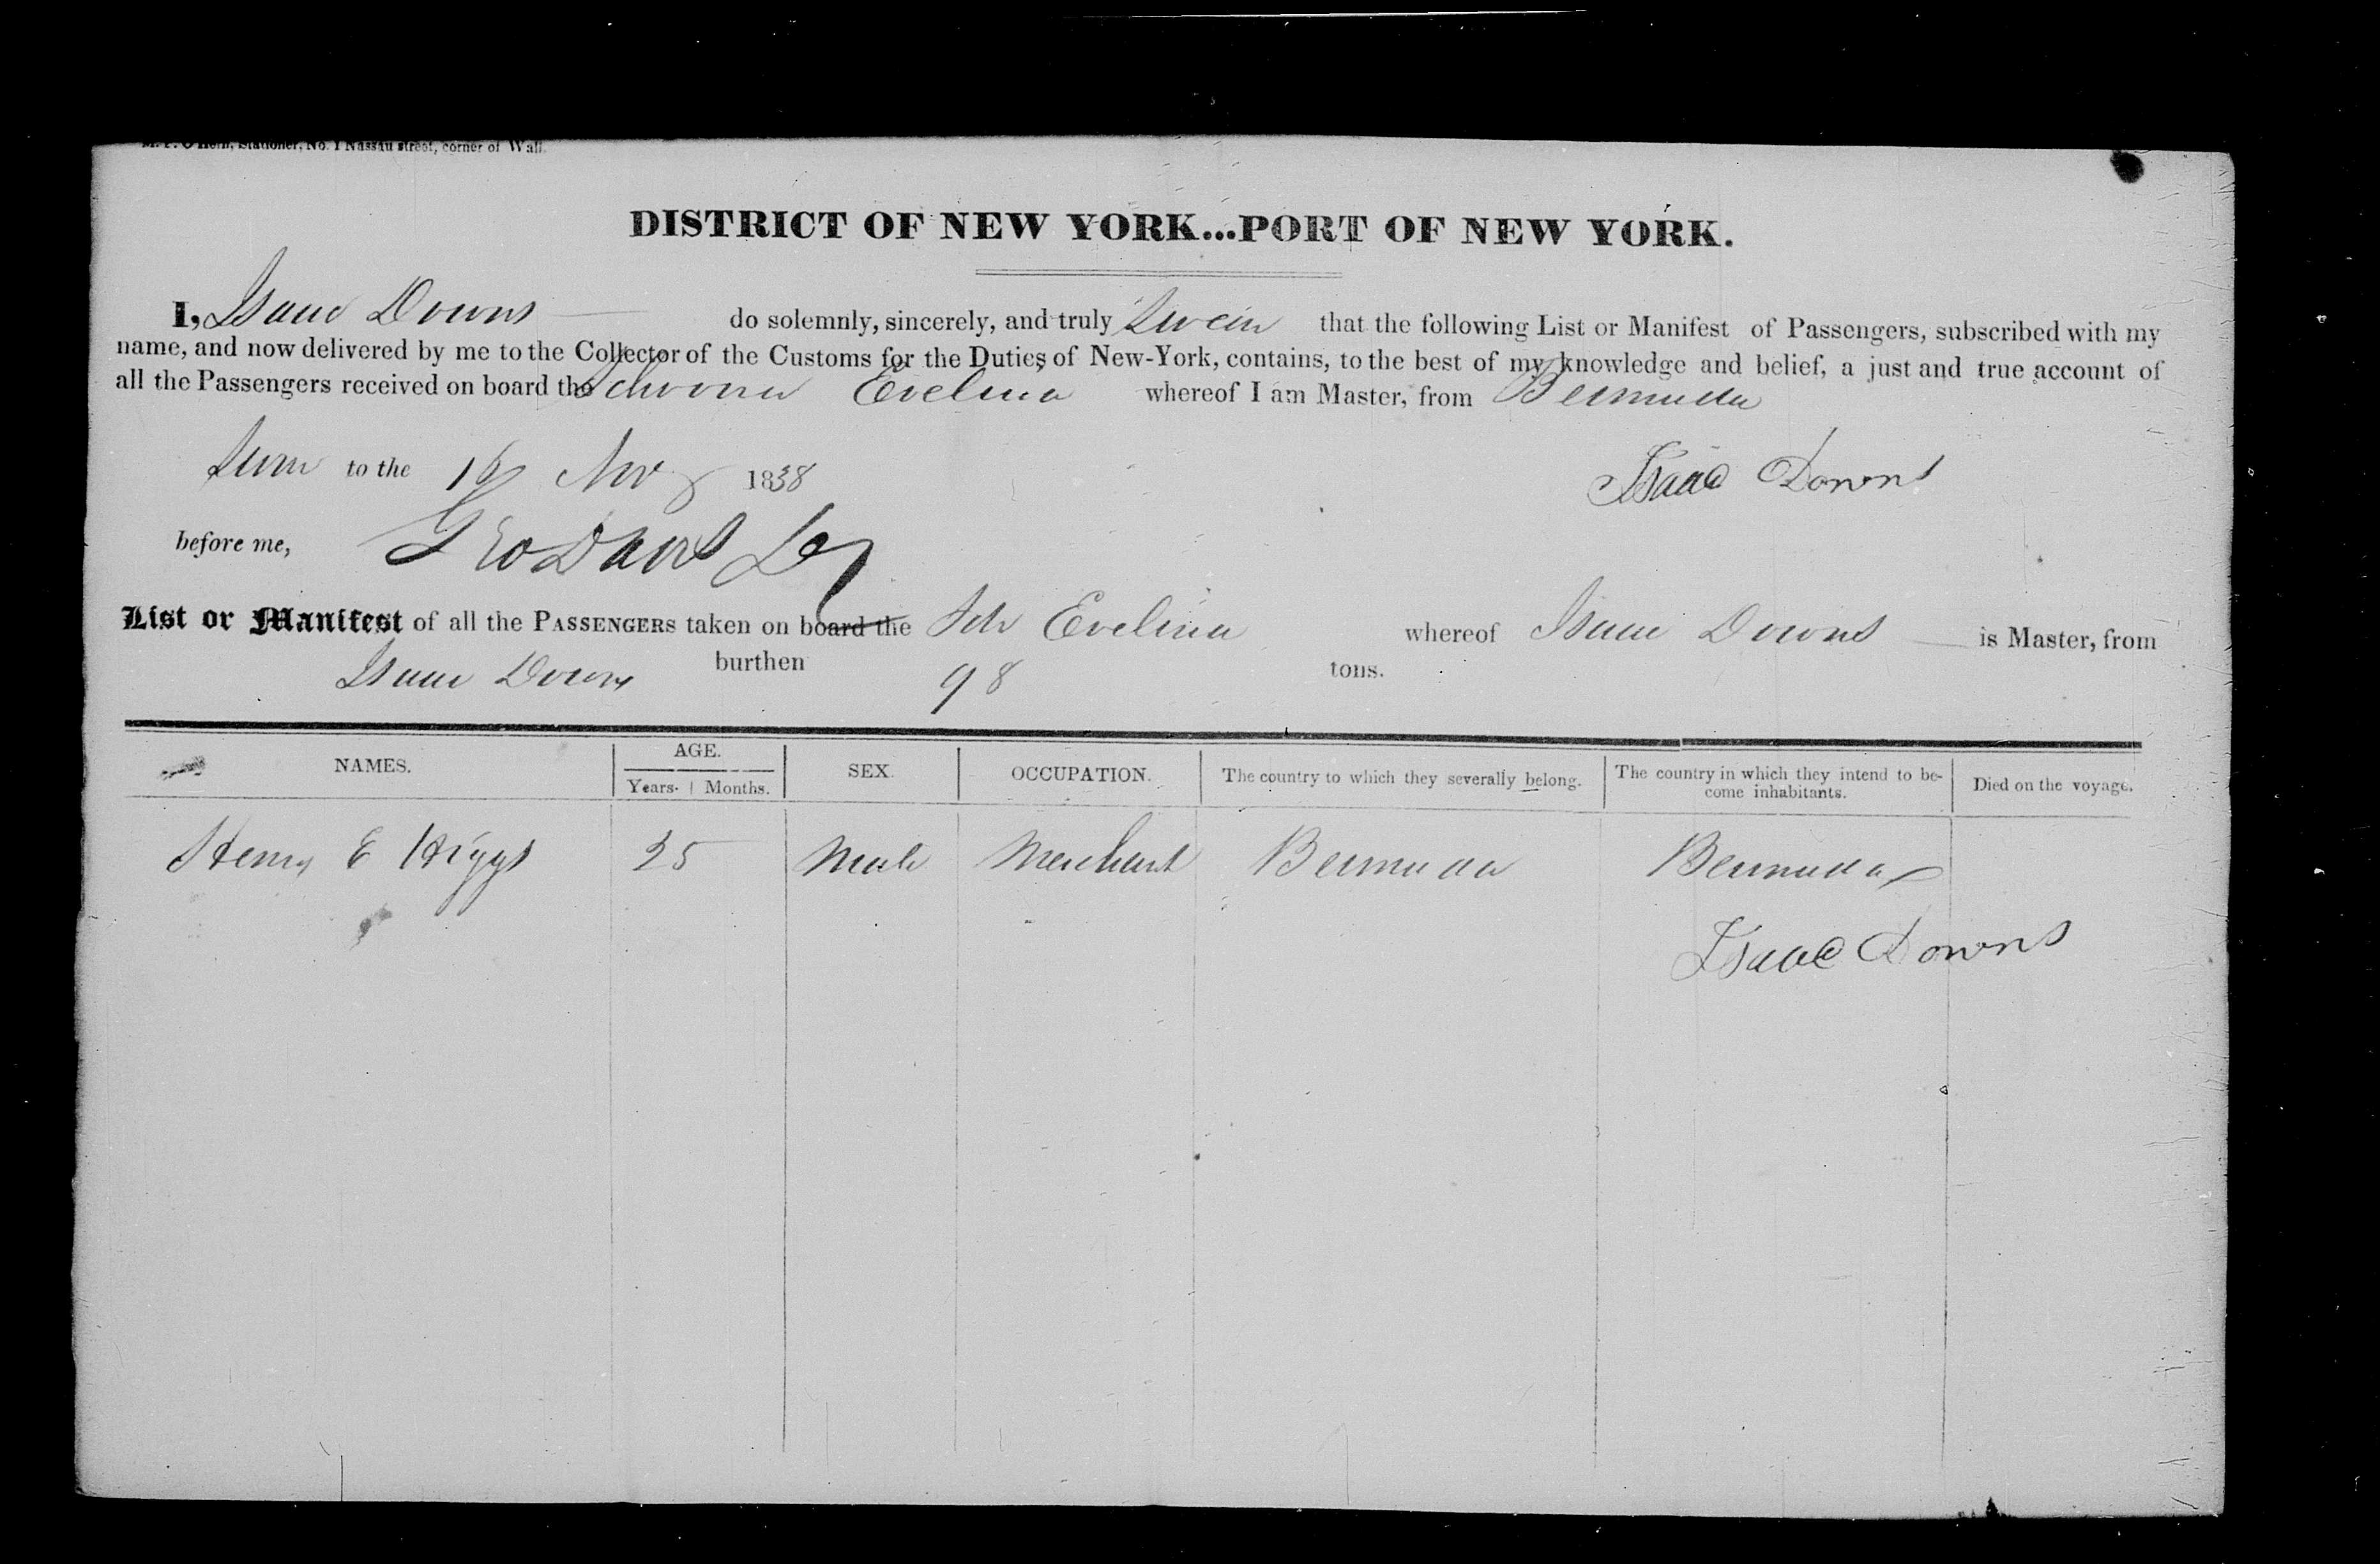 M. P. O'Hern, Stationer, No. 1 Nassau street, corner of Wall.
DISTRICT OF NEW YORK...PORT OF NEW YORK.
I, Isaac Downs do solemnly, sincerely, and truly Swear that the following List or Manifest of Passengers, subscribed with my
name, and now delivered by me to the Collector of the Customs for the Duties of New-York, contains, to the best of my knowledge and belief, a just and true account of
all the Passengers received on board the Schooner Evelina whereof I am Master, from Bermuda
Sworn to the 16 Nov 1838
Isaac Downs
before me, Geo Davis
List or Manifest of all the PASSENGERS taken on board the Sch Evelina whereof Isaac Downs is Master, from
Isaac Downs burthen 98 tons.
NAMES. AGE. Years. Months. SEX. OCCUPATION. The country to which they severally belong. The country in which they intend to be-
come inhabitants. Died on the voyage.
Henry E Higgs 25 Male Merchant Bermuda Bermuda
Isaac Downs